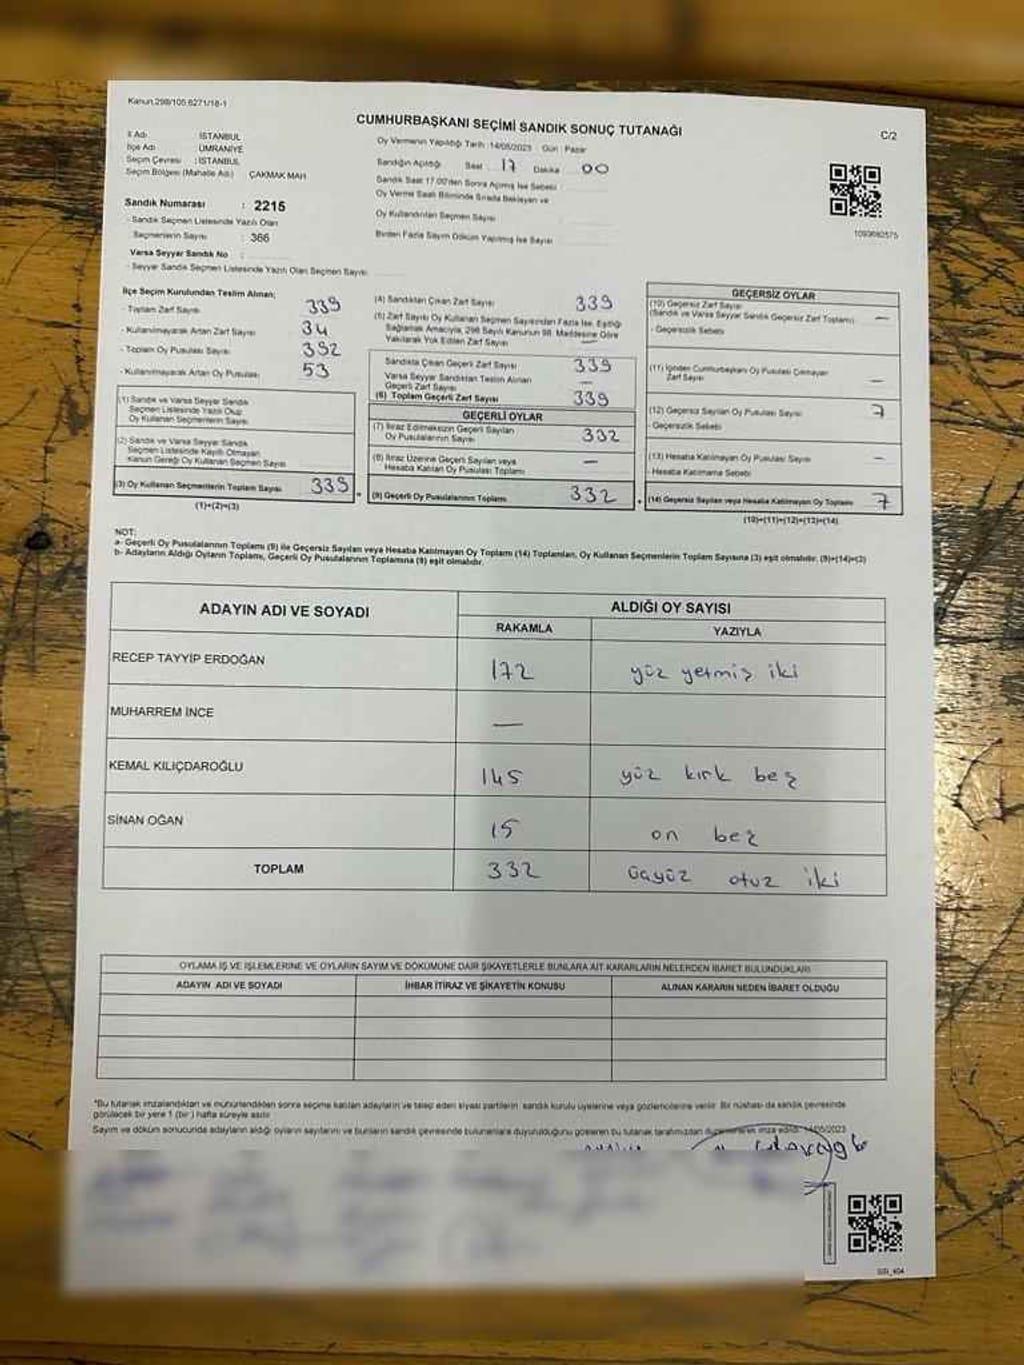 Kanun.298/105,6271/18-1
CUMHURBAŞKANI SEÇİMİ SANDIK SONUÇ TUTANAĞI
C/2
İl Adı : İSTANBUL
İlçe Adı : ÜMRANİYE
Seçim Çevresi : İSTANBUL
Seçim Bölgesi (Mahalle Adı) ÇAKMAK MAH
Oy Vermenin Yapıldığı Tarih :14/05/2023 Gün : Pazar
Sandığın Açıldığı Saat 17 Dakika 00
Sandık Saat 17.00'den Sonra Açılmış İse Sebebi
Oy Verme Saati Bitiminde Sırada Bekleyen ve
Oy Kullandırılan Seçmen Sayısı
Birden Fazla Sayım Döküm Yapılmış İse Sayısı
Sandık Numarası : 2215
- Sandık Seçmen Listesinde Yazılı Olan
Seçmenlerin Sayısı : 366
Varsa Seyyar Sandık No :
- Seyyar Sandık Seçmen Listesinde Yazılı Olan Seçmen Sayısı
1093682575
İlçe Seçim Kurulundan Teslim Alınan;
- Toplam Zarf Sayısı 339
- Kullanılmayarak Artan Zarf Sayısı 34
- Toplam Oy Pusulası Sayısı 392
- Kullanılmayarak Artan Oy Pusulası 53
(1) Sandık ve Varsa Seyyar Sandık
Seçmen Listesinde Yazılı Olup
Oy Kullanan Seçmenlerin Sayısı
(2) Sandık ve Varsa Seyyar Sandık
Seçmen Listesinde Kayıtlı Olmayan
Kanun Gereği Oy Kullanan Seçmen Sayısı
(3) Oy Kullanan Seçmenlerin Toplam Sayısı 339
(1)+(2)=(3)
(4) Sandıktan Çıkan Zarf Sayısı 339
(5) Zarf Sayısı Oy Kullanan Seçmen Sayısından Fazla İse, Eşitliği
Sağlamak Amacıyla, 298 Sayılı Kanunun 98. Maddesine Göre
Yakılarak Yok Edilen Zarf Sayısı —
Sandıkta Çıkan Geçerli Zarf Sayısı 339
Varsa Seyyar Sandıktan Teslim Alınan
Geçerli Zarf Sayısı —
(6) Toplam Geçerli Zarf Sayısı 339
GEÇERLİ OYLAR
(7) İtiraz Edilmeksizin Geçerli Sayılan
Oy Pusulalarının Sayısı 332
(8) İtiraz Üzerine Geçerli Sayılan veya
Hesaba Katılan Oy Pusulası Toplamı —
(9) Geçerli Oy Pusulalarının Toplamı 332
GEÇERSİZ OYLAR
(10) Geçersiz Zarf Sayısı
(Sandık ve Varsa Seyyar Sandık Geçersiz Zarf Toplamı) —
- Geçersizlik Sebebi
(11) İçinden Cumhurbaşkanı Oy Pusulası Çıkmayan
Zarf Sayısı —
(12) Geçersiz Sayılan Oy Pusulası Sayısı 7
- Geçersizlik Sebebi
(13) Hesaba Katılmayan Oy Pusulası Sayısı —
- Hesaba Katılmama Sebebi
(14) Geçersiz Sayılan veya Hesaba Katılmayan Oy Toplamı 7
(10)+(11)+(12)+(13)=(14)
NOT:
a- Geçerli Oy Pusulalarının Toplamı (9) ile Geçersiz Sayılan veya Hesaba Katılmayan Oy Toplamı (14) Toplamları, Oy Kullanan Seçmenlerin Toplam Sayısına (3) eşit olmalıdır. (9)+(14)=(3)
b- Adayların Aldığı Oyların Toplamı, Geçerli Oy Pusulalarının Toplamına (9) eşit olmalıdır.
ADAYIN ADI VE SOYADI ALDIĞI OY SAYISI
RAKAMLA YAZIYLA
RECEP TAYYİP ERDOĞAN 172 yüz yetmiş iki
MUHARREM İNCE —
KEMAL KILIÇDAROĞLU 145 yüz kırk beş
SİNAN OĞAN 15 on beş
TOPLAM 332 üçyüz otuz iki
OYLAMA İŞ VE İŞLEMLERİNE VE OYLARIN SAYIM VE DÖKÜMÜNE DAİR ŞİKAYETLERLE BUNLARA AİT KARARLARIN NELERDEN İBARET BULUNDUKLARI
ADAYIN ADI VE SOYADI İHBAR İTİRAZ VE ŞİKAYETİN KONUSU ALINAN KARARIN NEDEN İBARET OLDUĞU
*Bu tutanak imzalandıktan ve mühürlendikten sonra seçime katılan adayların ve talep eden siyasi partilerin sandık kurulu üyelerine veya gözlemcilerine verilir. Bir nüshası da sandık çevresinde
görülecek bir yere 1 (bir) hafta süreyle asılır
Sayım ve döküm sonucunda adayların aldığı oyların sayılarını ve bunların sandık çevresinde bulunanlara duyurulduğunu gösteren bu tutanak tarafımızdan düzenlenerek imza edildi. 14/05/2023